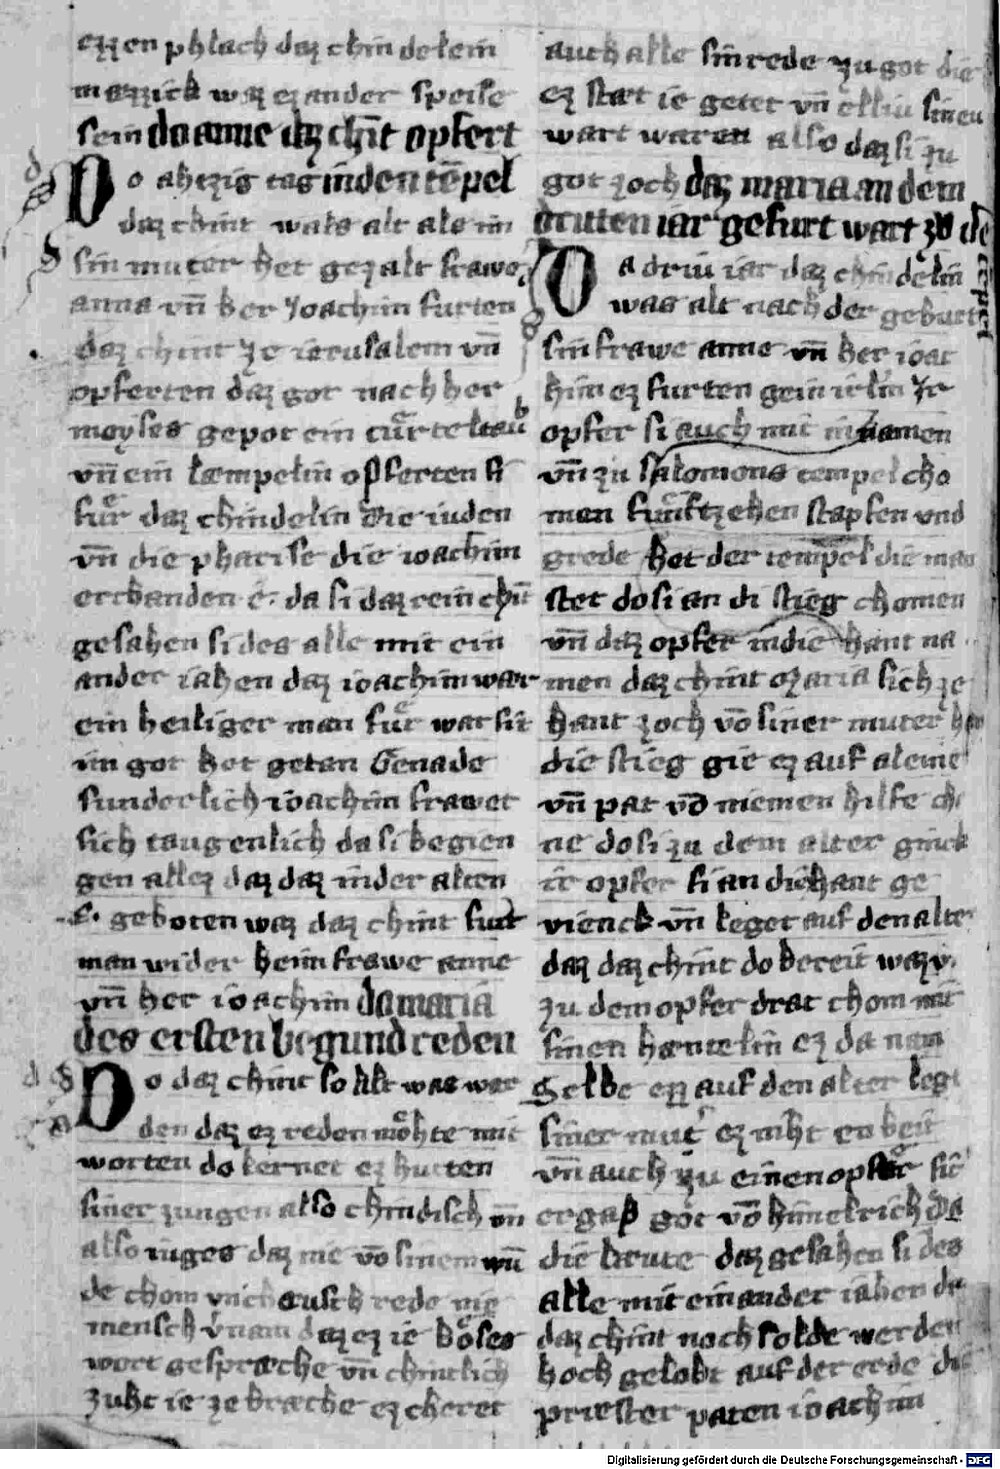 ezzen phlach daz chindelein
mazzick waz ez ander speise
sein do anne daz chīt opfert
Do ahtzig tag in den tēpel
daz chint waks alt als im
sin muter het gezalt frawe
anna vn̄ her Joachim furten
daz chint ze ierusalem vn̄
opferten daz got nach her
moyses gepot ein tuͤrteltaub
vn̄ ein læmpelin opferten si
fuͤr daz chindelin Die iuden
vn̄ die pharise die ioachim
erchanden e· da si daz rein chīt
gesahen si des alle mit ein
ander iahen daz ioachim wær
ein heiliger man fuͤr war sit
im got het getan Genade
sunderlich ioachim frawet
sich taugenlich da si begien
gen allez daz daz in der alten
e· geboten waz daz chint furt
man wider heim frawe anne
vn̄ her ioachim da maria
des ersten begund reden
Do daz chint so alt was wor
den daz ez reden moͤhte mit
worten do lernet ez hutten
siner zungen also chindisch vn̄
also iuges daz nie vō sinem mū
de chom rede nie
mensch vernam daz ez ie boͤses
wort gespræche vn̄ chintlich
zuht ie zebræche ez cheret
auch alle sin rede zu got die
ez stæt ie getet vn̄ elliu sineu
wart waren also daz si zu
got zoch daz maria an dem
driten iar gefurt wart zu dē
tēpel
Da driu iar daz chindelin
was alt nach der geburt
sin frawe anne vn̄ her ioac
him ez furten gein irlm̄ ze
opfer si auch mit in namen
vn̄ zu salomons tempel cho
men fuͤnftzehen stapfen vnd
grede het der tempel die man
stet do si an di stieg chomen
vn̄ daz opfer in die hant na
men daz chint ozaria sich ze
hant zoch vō siner muter
die stieg gie ez auf aleine
vn̄ pat vō niemen hilfe
ne do si zu dem alter ginck
ir opfer si an die hant ge
vienck vn̄ leget auf den alter
daz daz chint do bereit waz
zu dem opfer drat chom mit
sinen hænttelin ez da nam
Selbe ez auf den alter legt
siner mut ez niht enbeit
vn̄ auch zu einen opfer
ergap got vō himelrich Da
die leute daz gesahen si des
alle mit einander iahen
daz chint noch solde werden
hoch gelobt auf der erde
priester paten ioachim
Digitalisierung gefördert durch die Deutsche Forschungsgemeinschaft - DFG